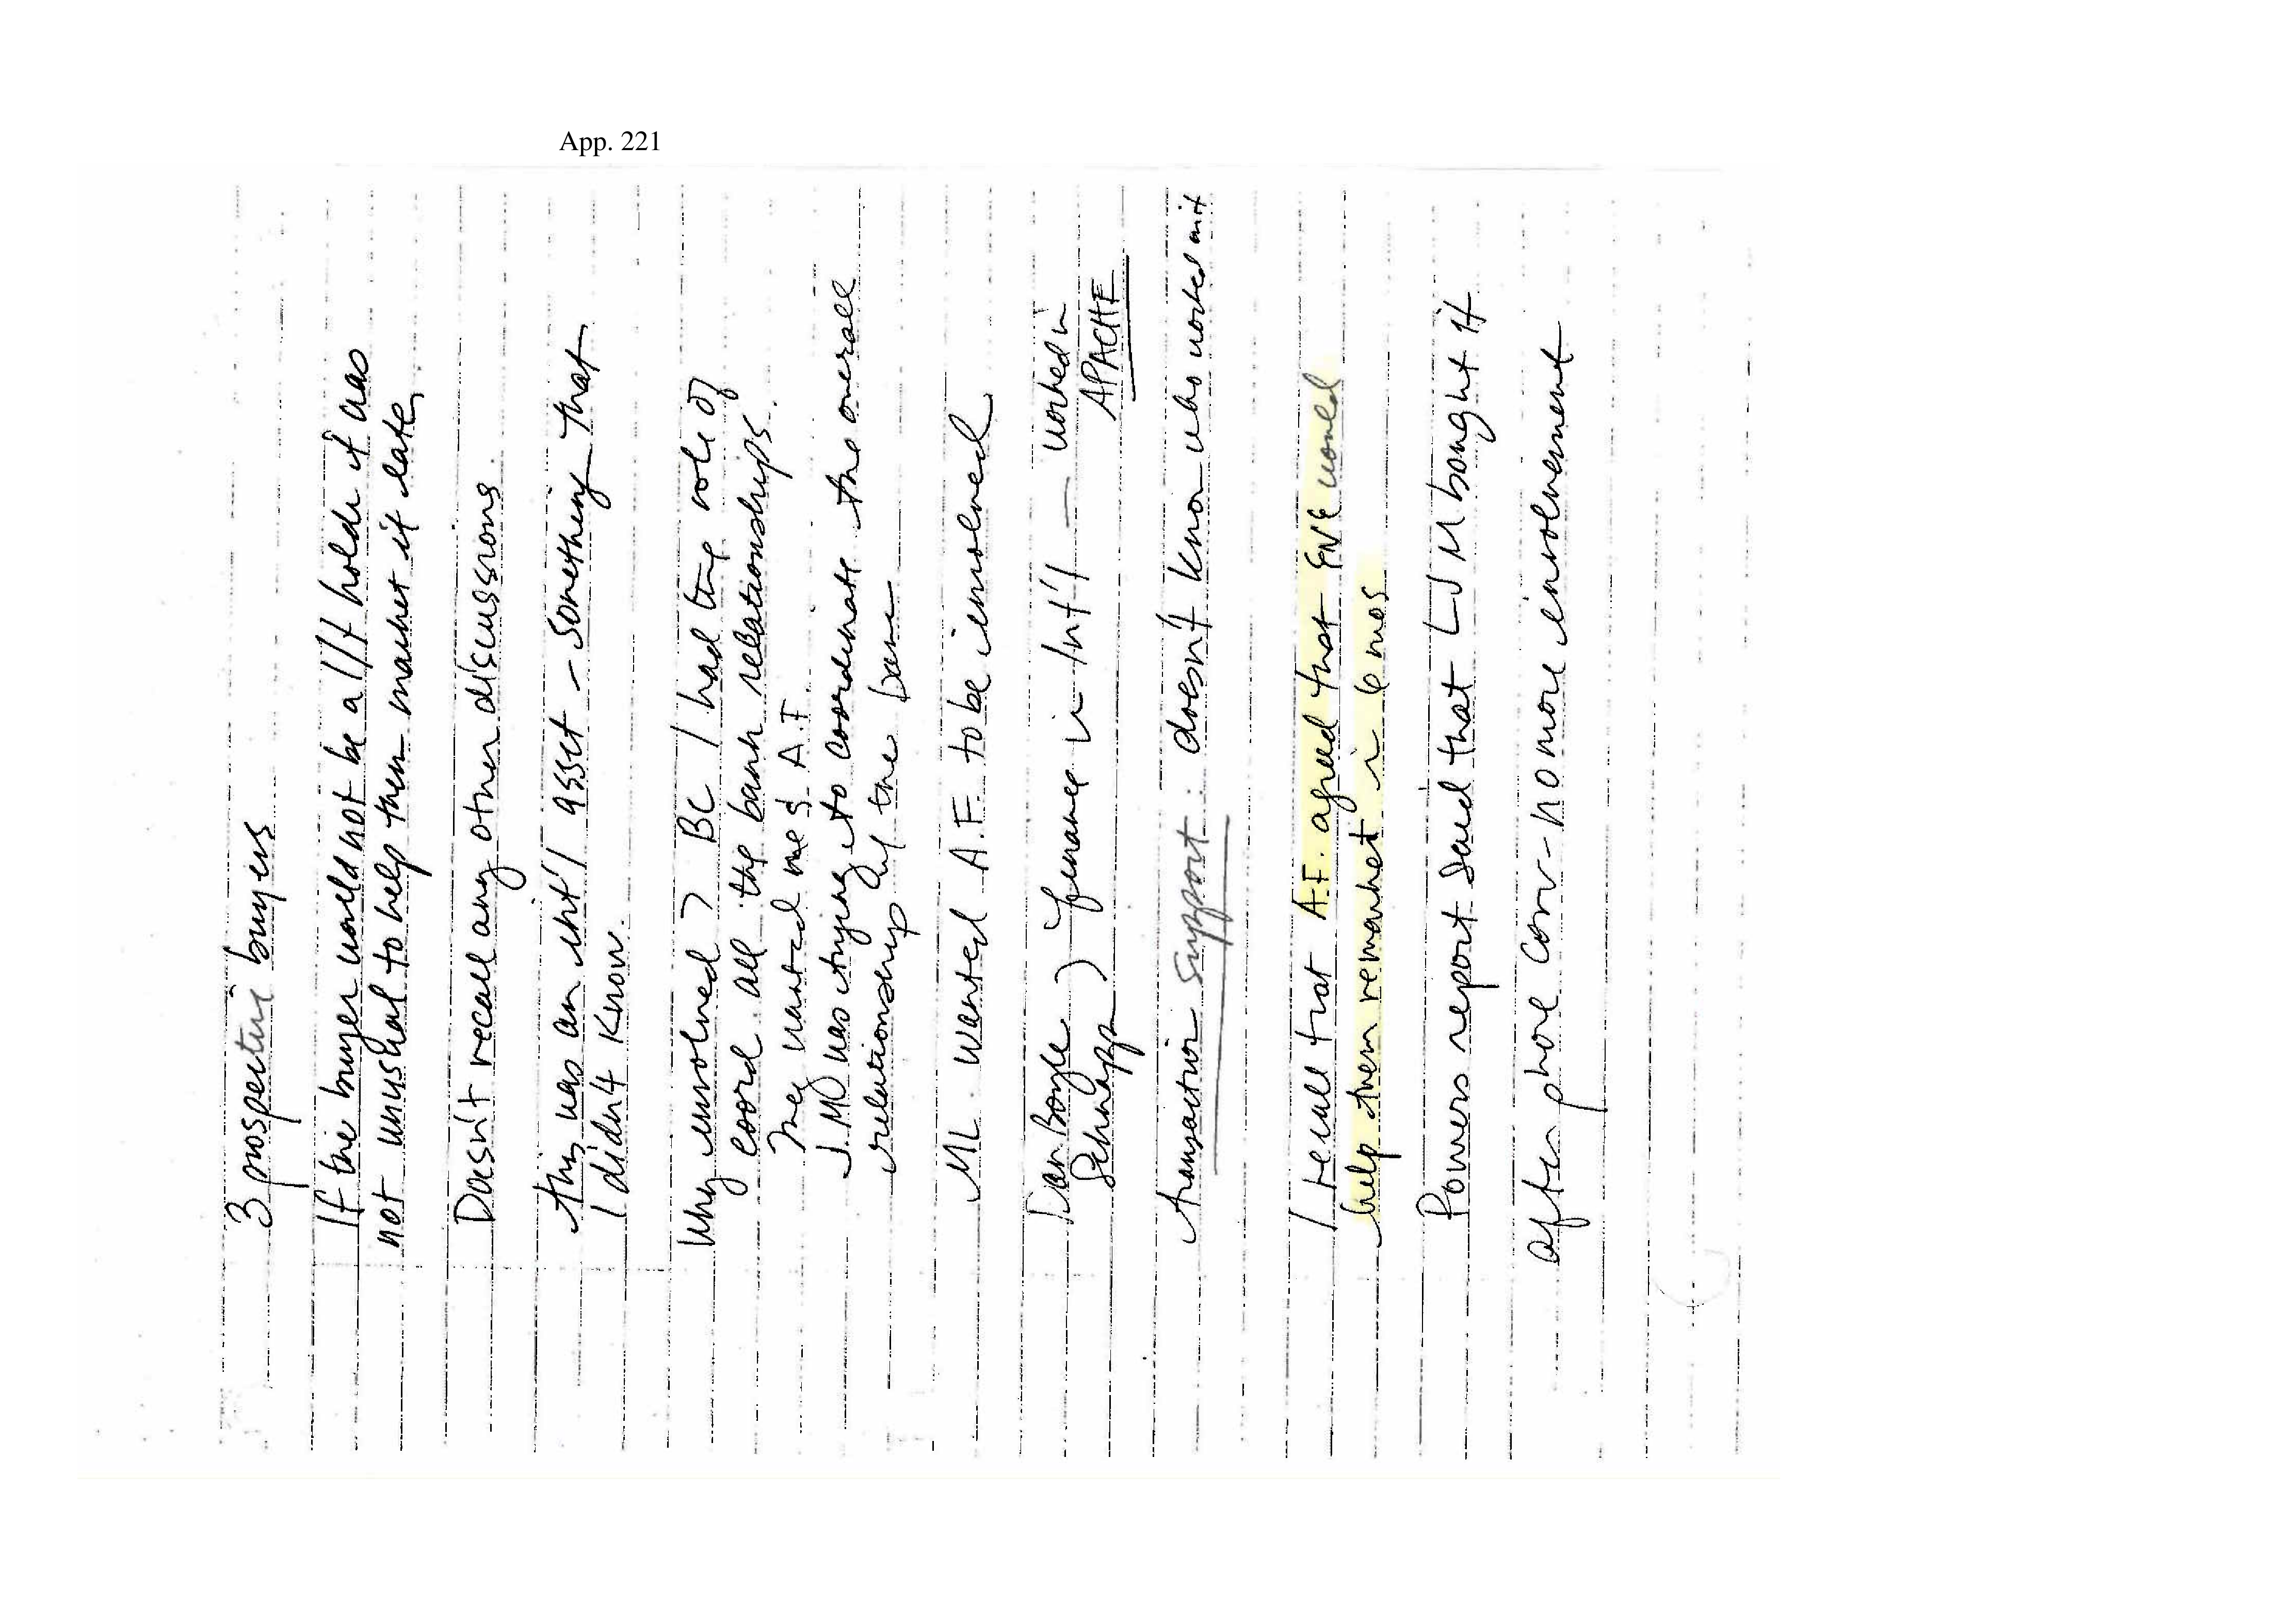 App. 221
3 prospective buyers
If the buyer would not be a l/t holder it was
not unusual to help them market it later
Doesn't recall any other discussions
this was an int'l asset - something that
I didn't know.
Why involved? BC I had the role of
coord. all the bank relationships.
They wanted me & A.F.
J.M was trying to coordinate the overall
relationship w/ the bank
ML wanted A.F. to be involved
Dan Boyle ) finance in Int'l — worked in
Schnapp ) APACHE
transaction support: doesn't know who worked on it
I recall that A.F. agreed that ENE would
help them remarket in 6 mos
Powers report said that LJM bought it
after phone conv - no more involvement